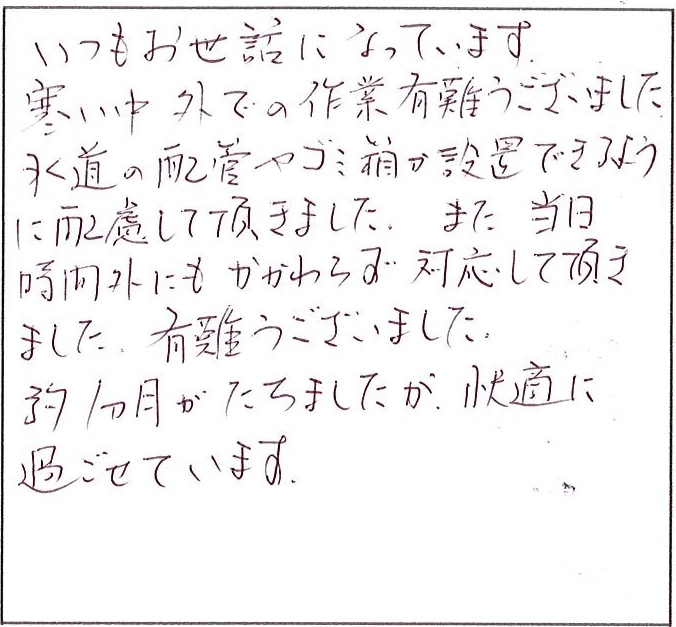 いつもお世話になっています.
寒い中 外での作業有難うございました
水道の配管やゴミ箱が設置できるよう
に配慮して頂きました. また 当日
時間外にもかかわらず 対応して頂き
ました. 有難うございました.
約1ヶ月がたちましたが. 快適に
過ごせています.